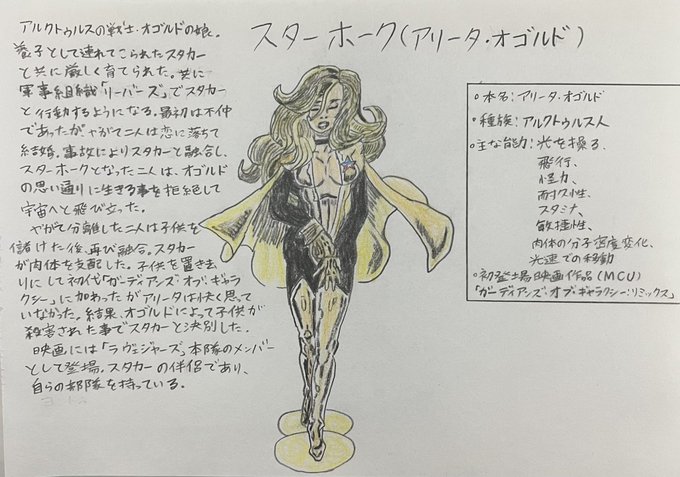 スターホーク(アリータ・オゴルド)
アルクトゥルスの戦士・オゴルドの娘。
養子として連れてこられたスタカー
と共に厳しく育てられた。共に
軍事組織「リーバーズ」でスタカー
と行動するようになる。最初は不仲
であったがやがて二人は恋に落ちて
結婚。事故によりスタカーと融合し、
スターホークとなった二人は、オゴルド
の思い通りに生きる事を拒絶して
宇宙へと飛び立った。
やがて分離した二人は子供を
儲けた後、再び融合。スタカー
が肉体を支配した。子供を置き去
りにして初代「ガーディアンズ・オブ・ギャラ
クシー」に加わったがアリータは快く思って
いなかった。結果、オゴルドによって子供が
殺害された事でスタカーと決別した。
映画には「ラヴェジャーズ」本隊のメンバー
として登場。スタカーの伴侶であり、
自らの部隊を持っている。
・本名：アリータ・オゴルド
・種族：アルクトゥルス人
・主な能力：光を操る、
飛行、
怪力、
耐久性、
スタミナ、
敏捷性、
肉体の分子密度変化、
光速での移動
・初登場映画作品(MCU)
「ガーディアンズ・オブ・ギャラクシー：リミックス」